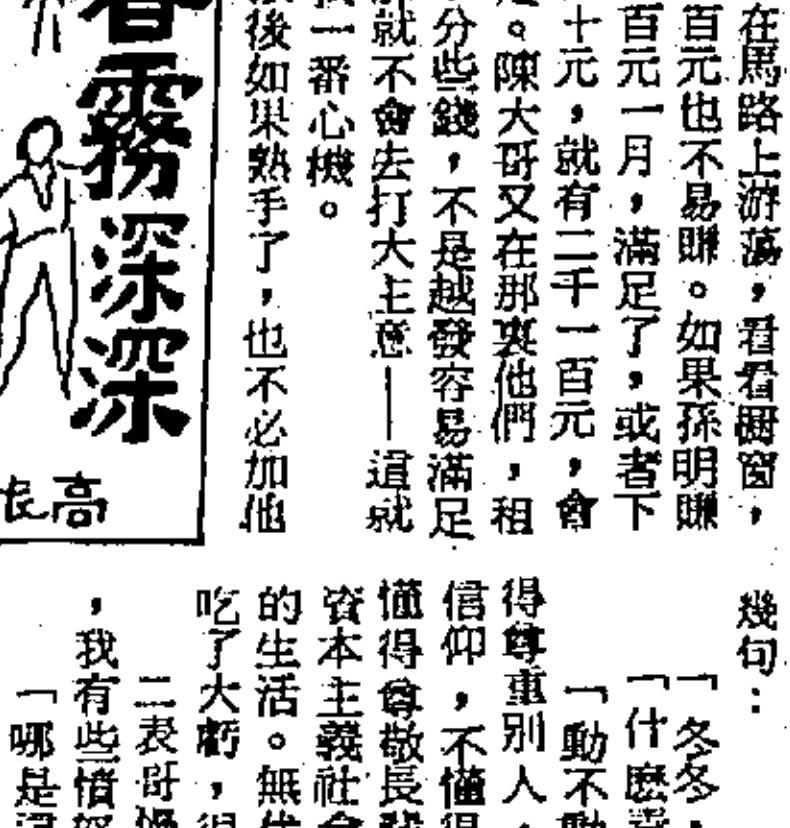 在馬路上游蕩，看看櫥窗，
百元也不易賺。如果孫明賺
百元一月，滿足了，或者下
十元，就有二千一百元，會
。陳大哥又在那裏他們，租
分些錢，不是越發容易滿足
就不會去打大主意——這就
一番心機。
後如果熟手了，也不必加他
霧深深
高
幾句：
「冬冬，
「什麼
「動不動
得尊重別人，
信仰，不懂得
懂得尊敬長
資本主義社會
的生活。無
吃了大虧，很
二表哥
，我有些憤怒
「哪是